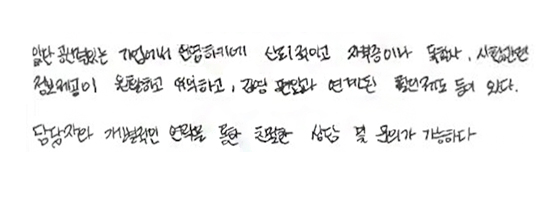 일단 공신력있는 기업에서 운영하기에 신뢰적이고 자격증이나 독학사, 시험관련
정보제공이 원활하고 유익하고, 경영 편입과 연계된 할인제도 등이 있다.
담당자와 개별적인 연락을 통한 친절한 상담 및 문의가 가능하다